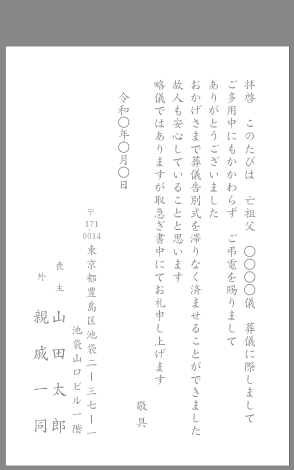 拝啓　このたびは　亡祖父　〇〇〇〇儀　葬儀に際しまして
ご多用中にもかかわらず　ご弔電を賜りまして
ありがとうございました
おかげさまで葬儀告別式を滞りなく済ませることができました
故人も安心していることと思います
略儀ではありますが取急ぎ書中にてお礼申し上げます
敬具
令和〇年〇月〇日
〒171 0014 東京都豊島区池袋二ー三七ー一
池袋山口ビル一階
喪主　山田太郎
外　親戚一同